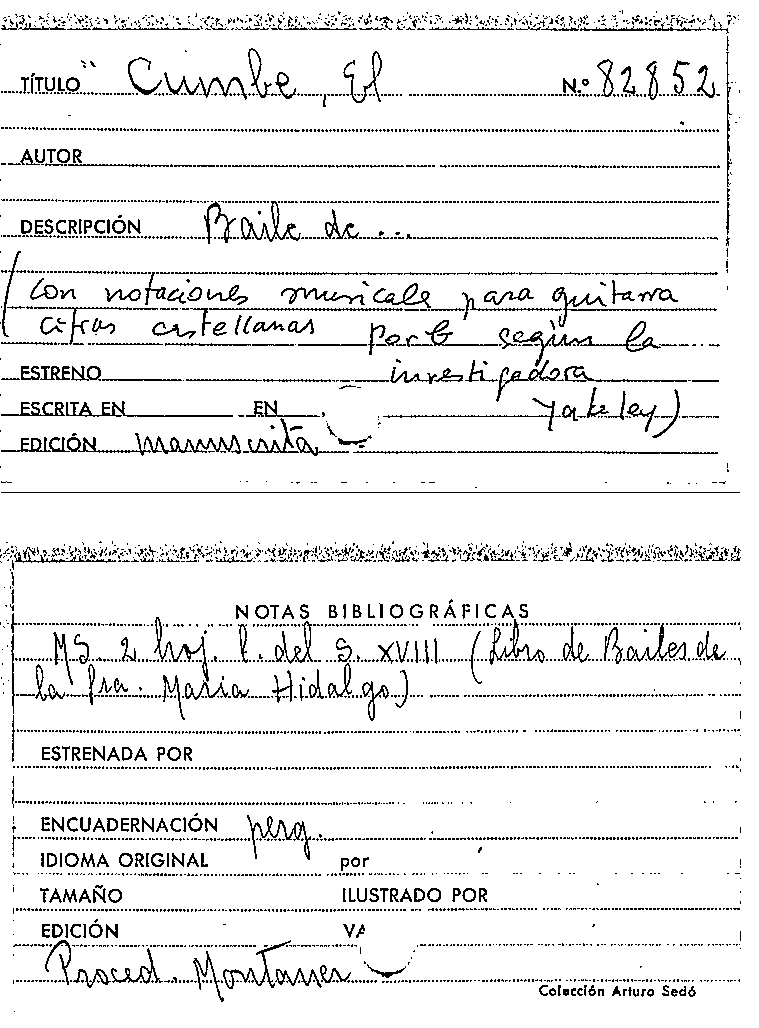 TÍTULO " Cumbe, El N.º 82852
AUTOR
DESCRIPCIÓN Baile de ...
(Con notaciones musicale para guitarra
cifras castellanas por b según la
ESTRENO investigadora
ESCRITA EN EN Yakeley)
EDICIÓN manuscrita
NOTAS BIBLIOGRÁFICAS
MS. 2 hoj. l. del S. XVIII (Libro de Bailes de
la Sra. Maria Hidalgo)
ESTRENADA POR
ENCUADERNACIÓN perg.
IDIOMA ORIGINAL por
TAMAÑO ILUSTRADO POR
EDICIÓN VA
Proced. Montaner
Colección Arturo Sedó